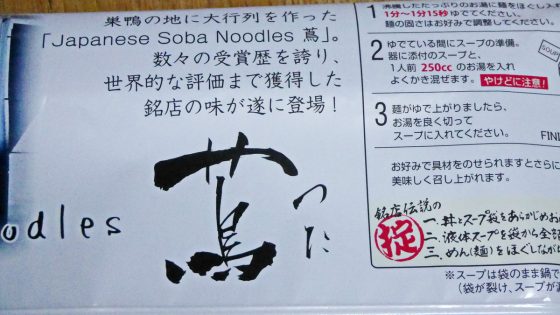 巣鴨の地に大行列を作った
「Japanese Soba Noodles 蔦」。
数々の受賞歴を誇り、
世界的な評価まで獲得した
銘店の味が遂に登場！
蔦
つた
udles
1分〜1分15秒ゆでてください。
麺の固さはお好みで調整してください。
2 ゆでている間にスープの準備。
器に添付のスープと、
1人前 250cc のお湯を入れ
よくかき混ぜます。 やけどに注意!
SOUP
3 麺がゆで上がりましたら、
お湯を良く切って
スープに入れてください。
FIN
お好みで具材をのせられますとさらに
美味しく召し上がれます。
銘店伝説の
掟
一、丼とスープ袋をあらかじめお
二、液体スープを袋から全部
三、めん(麺)をほぐしなが
※スープは袋のまま鍋で
(袋が裂け、スープが